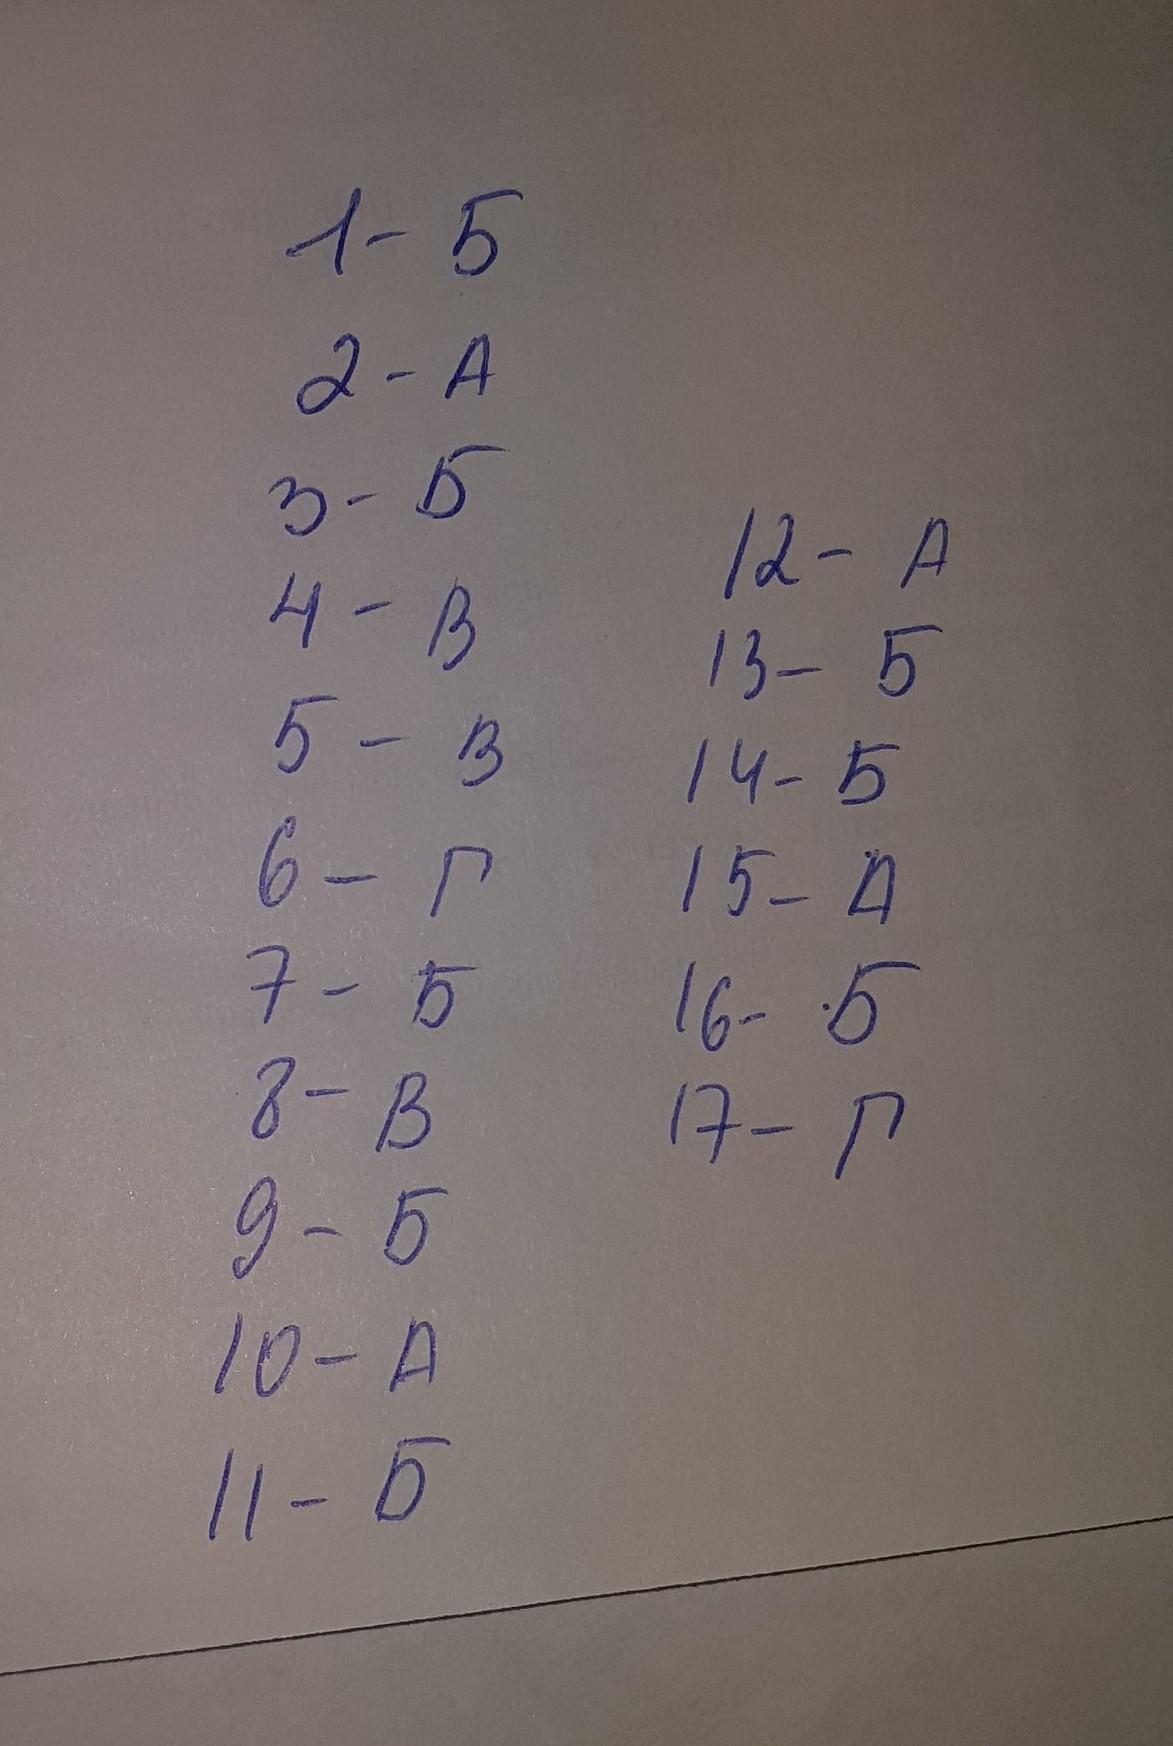 1- Б
2- А
3- Б
4- В
5- В
6- Г
7- Б
8- В
9- Б
10- А
11- Б
12- А
13- Б
14- Б
15- А
16- Б
17- Г